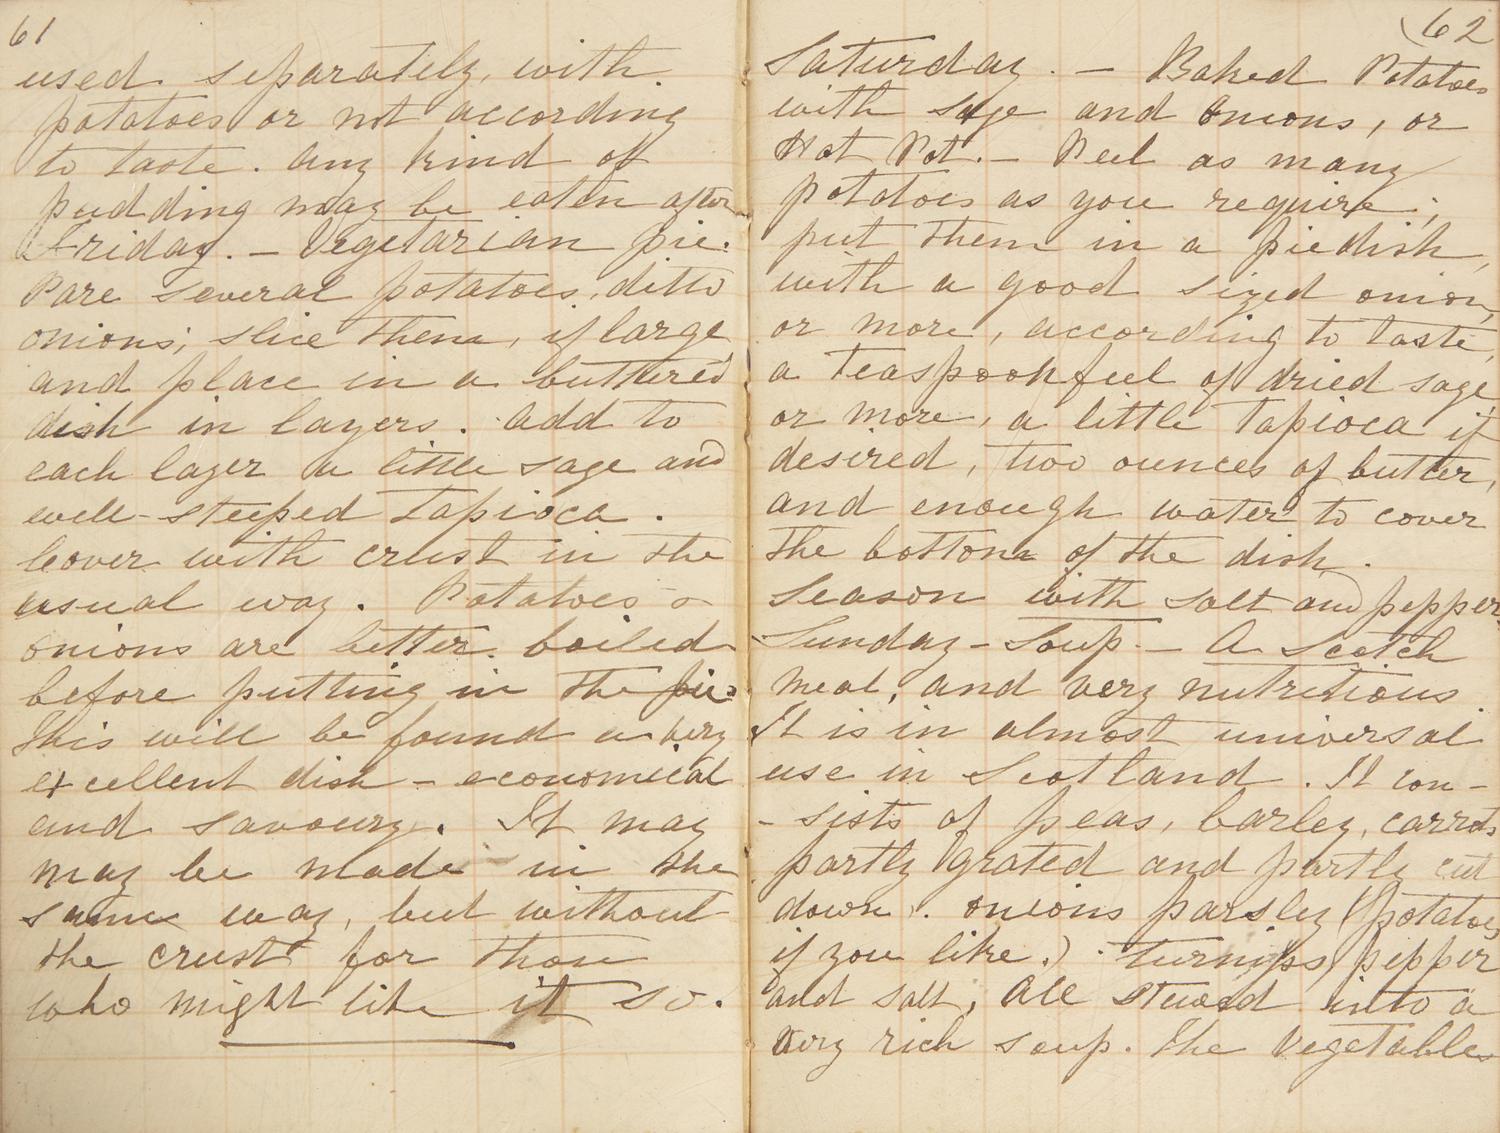 61
used separately, with
potatoes or not according
to taste. Any kind of
pudding may be eaten after
Friday. — Vegetarian pie.
Pare several potatoes, ditto
onions; slice them, if large
and place in a buttered
dish in layers. Add to
each layer a little sage and
well-steeped tapioca.
Cover with crust in the
usual way. Potatoes &
onions are better boiled
before putting in the pie.
This will be found a very
excellent dish - economical
and savoury. It may
may be made in the
same way, but without
the crust for those
who might like it so.
62
Saturday. — Baked Potatoes
with sage and onions, or
Hot Pot. — Peel as many
potatoes as you require;
put them in a piedish,
with a good sized onion,
or more, according to taste,
a teaspoonful of dried sage,
or more, a little tapioca if
desired, two ounces of butter,
and enough water to cover
the bottom of the dish.
Season with salt and pepper.
Sunday - Soup. — A Scotch
meal, and very nutritious.
It is in almost universal
use in Scotland. It con-
-sists of peas, barley, carrots
partly grated and partly cut
down. onions parsley (potatoes,
if you like.) turnips, pepper
and salt, All stewed into a
very rich soup. The vegetables